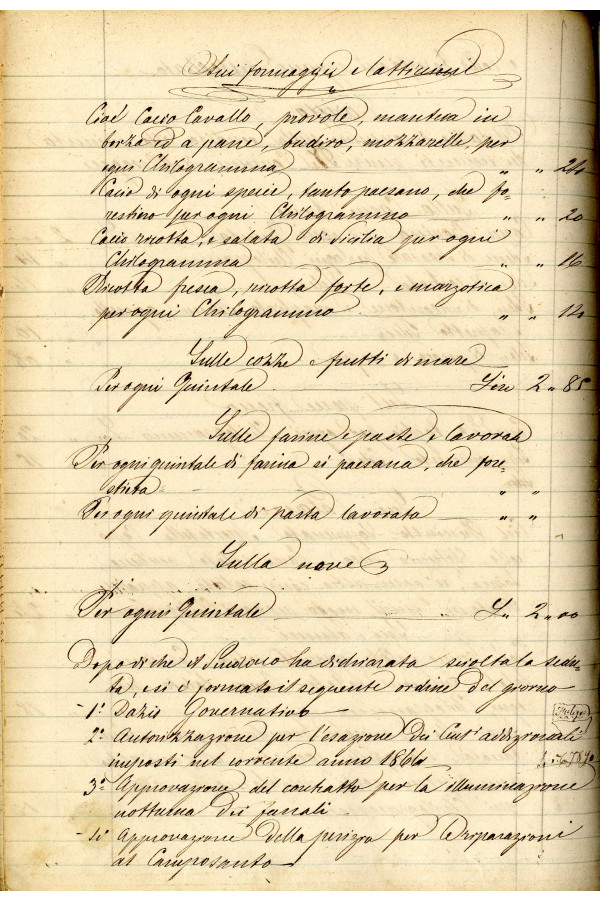 Sui formaggi e latticini
Cioè Cacio Cavallo, provole, mantèca in
forza ed a pane, budiro, mozzarelle, per
ogni Chilogramma " " 24
Cacio di ogni specie, tanto paesano, che fo-
restino per ogni Chilogrammo " " 20
Cacio ricotta, e salata di Sicilia per ogni
Chilogramma " " 16
Ricotta fresca, ricotta forte, e marzotica
per ogni Chilogrammo " " 12
Sulle cozze e frutti di mare
Per ogni Quintale Lire 2 " 85
Sulle farine e paste e lavorate
Per ogni quintale di farina sì paesana, che fore-
stiera " "
Per ogni quintale di pasta lavorata " "
Sulla neve
Per ogni Quintale L. 2 " 00
Dopo di che il Sindaco ha dichiarata sciolta la sedu-
ta, e si è formato il seguente ordine del giorno
1° Dazio Governativo
2° Autorizzazione per l'esazione dei Cent.i addizionali
imposti nel corrente anno 1864
3° Approvazione del contratto per la illuminazione
notturna dei fanali
4° Approvazione della perizia per Riparazioni
al Camposanto